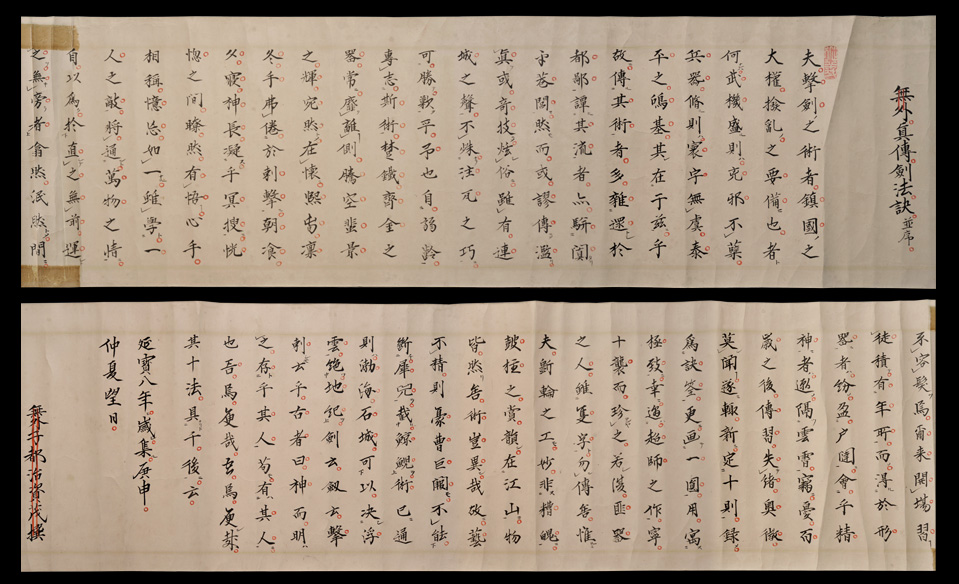 無外真傳劍法訣並序
夫撃劍之術者鎮國之
大權撥乱之要備也者
何武機盛則克邪不蘖
兵器脩則寰宇無虞泰
平之鴻基其在于玆乎
故傳其術者多雜遝於
都鄙譚其流者亦駢闐
于巷閭然而或謬傳濫
真或奇技炫俗雖有連
城之聲不姝注瓦之巧
可勝歎乎予也自弱齡
專志斯術楚鐵齊金之
器常靡離側騰空蜚景
之輝宛然在懷燠凛
冬手弗倦於刺撃朝飡
夕寢神長凝乎冥搜恍
惚之間瞭然有悟心手
相稱憶忘如一雖學一
人之敵將通萬物之情
自以為於直之無前運
之無旁者翕然泯然間
不容髮焉爾来開場習
徒積有年所而游於形
器者份盈戶闥會乎精
神者邈隔雲霄竊憂百
歳之後傳習失緒奥微
莫聞遂輙新定十則録
為訣筌更画一圓用寓
極致幸遇超師之作寧
十襲而珍之若後匪器
之人雖隻字勿傳焉惟
夫斲輪之工妙非楷䂓
皷枻之賞韻在江山物
皆然焉術豈異哉故藝
不精則豪曹巨闕不能
斷犀兕哉鯨鯢術已通
則渤海石城可以決浮
雲絶地紀劍云劔云撃
刺云乎古者曰神而明
之存乎其人苟有其人
也吾焉廋哉吾焉廋哉
其十法具于後云
延寶八年歳集庚申
仲夏望日
無外子都治資茂撰